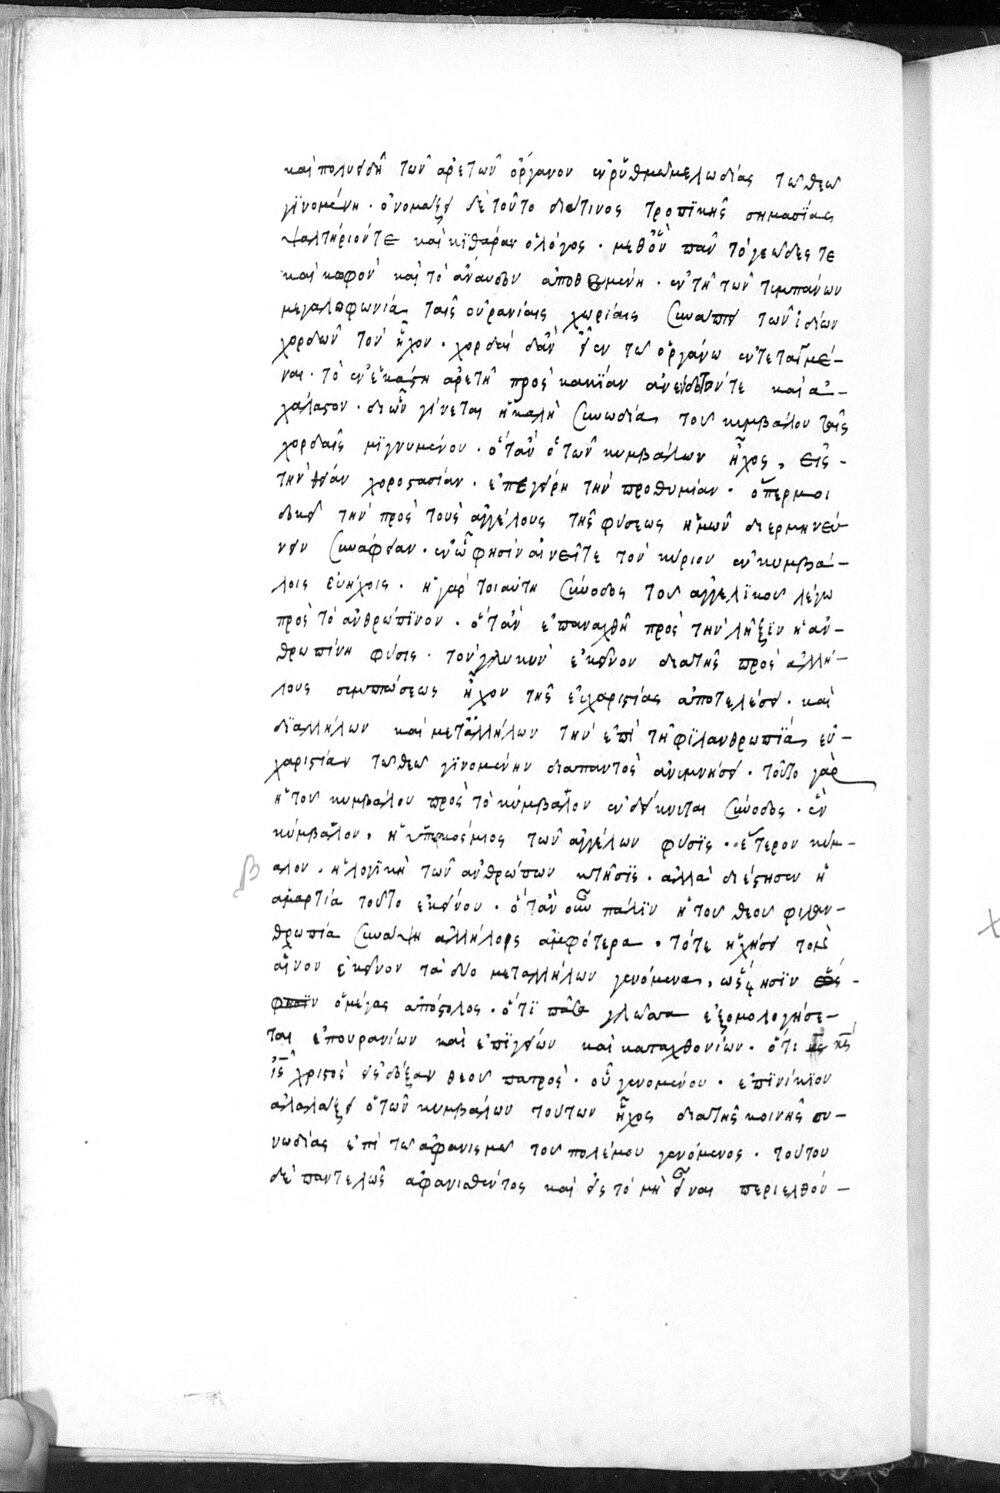 καὶ πολυειδῆ τῶν ἀρετῶν ὄργανον ἐν ῥυθμῶ μελωδίας τῶ θεῶ
γϊνομένη· ὀνομάζει δὲ τοῦτο διά τινος τροπϊκῆς σημασΐας
ψαλτήριόν τε καὶ κϊθάραν ὁ λόγος· μεθ' ὧν πᾶν τὸ γεῶδες τε
καὶ κωφὸν καὶ τὸ ἄναυδον ἀποθεμένη· ἐν τῆ τῶν τυμπάνων
μεγαλοφωνία, ταῖς οὐρανίαις χωρίαις συνάπτει τῶν ἰδίων
χορδῶν τὸν ἦχον· χορδαὶ δ' ἂν εἶεν τῶ ὀργάνω ἐντεταγμέ-
ναι· τὸ ἐν ἑκάστη ἀρετῆ πρὸς κακΐαν ἀνένδοτόν τε καὶ ἀ-
χάλαστον· δι' ὧν γίνεται ἡ καλὴ συνωδία, τοῦ κυμβάλου ταῖς
χορδαῖς μϊγνυμένου· ὅταν ὁ τῶν κυμβάλων ἦχος, εἰς
τὴν θείαν χοροστασίαν· ἐπεγείρη τὴν προθυμίαν· ὅπερ μοι
δοκεῖ τὴν πρὸς τοὺς ἀγγέλους τῆς φύσεως ἡμῶν διερμηνεύ-
ειν συνάφειαν· ἐν ὧ φησὶν αἰνεῖτε τὸν κύριον ἐν κυμβά-
λοις εὐήχοις· ἡ γὰρ τοιαύτη σύνοδος τοῦ ἀγγελϊκοῦ λέγω
πρὸς τὸ ἀνθρώπϊνον· ὅταν ἐπαναχθῆ πρὸς τὴν λῆξϊν ἡ ἀν-
θρωπίνη φύσις· τὸν γλυκὺν ἐκεῖνον διὰ τῆς πρὸς ἀλλή-
λους συμπτώσεως ἦχον τῆς εὐχαριστίας ἀποτελέσει· καὶ
δι' ἀλλήλων καὶ μετ' ἀλλήλων τὴν ἐπὶ τῆ φϊλανθρωπΐα, εὐ-
χαριστίαν τῶ θεῶ γϊνομένην διαπαντὸς ἀνυμνήσει· τοῦτο γὰρ
ἡ τοῦ κυμβάλου πρὸς τὸ κύμβαλον ἐνδείκνυται σύνοδος· ἓν
κύμβαλον, ἡ ὑπερκόσμιος τῶν ἀγγέλων φύσϊς· ἕτερον κύμ-
β αλον· ἡ λογϊκὴ τῶν ἀνθρώπων κτῆσϊς· ἀλλὰ διέστησεν ἡ
ἁμαρτία τοῦτο ἐκείνου· ὅταν οὖν πάλϊν ἡ τοῦ θεοῦ φιλαν-
θρωπία συνάψη ἀλλήλοις ἀμφότερα, τότε ἠχήσει τὸν
αἶνον ἐκεῖνον τὰ δύο μετ' ἀλλήλων γενόμενα, ὥς φησϊν
ὁ μέγας ἀπόστολος· ὅτϊ πᾶσα γλῶσσα ἐξομολογήσε-
ται ἐπουρανίων καὶ ἐπϊγείων καὶ καταχθονίων· ὅτι κ̅ς̅
ι̅ς̅ χριστὸς εἰς δόξαν θεοῦ πατρός· οὗ γενομένου· ἐπϊνίκϊον
ἀλαλάξει ὁ τῶν κυμβάλων τούτων ἦχος διὰ τῆς κοινῆς συ-
νωδίας ἐπὶ τῶ ἀφανισμῶ τοῦ πολέμου γενόμενος· τούτου
δὲ παντελῶς ἀφανισθέντος καὶ εἰς τὸ μὴ εἶναι περιελθόν-